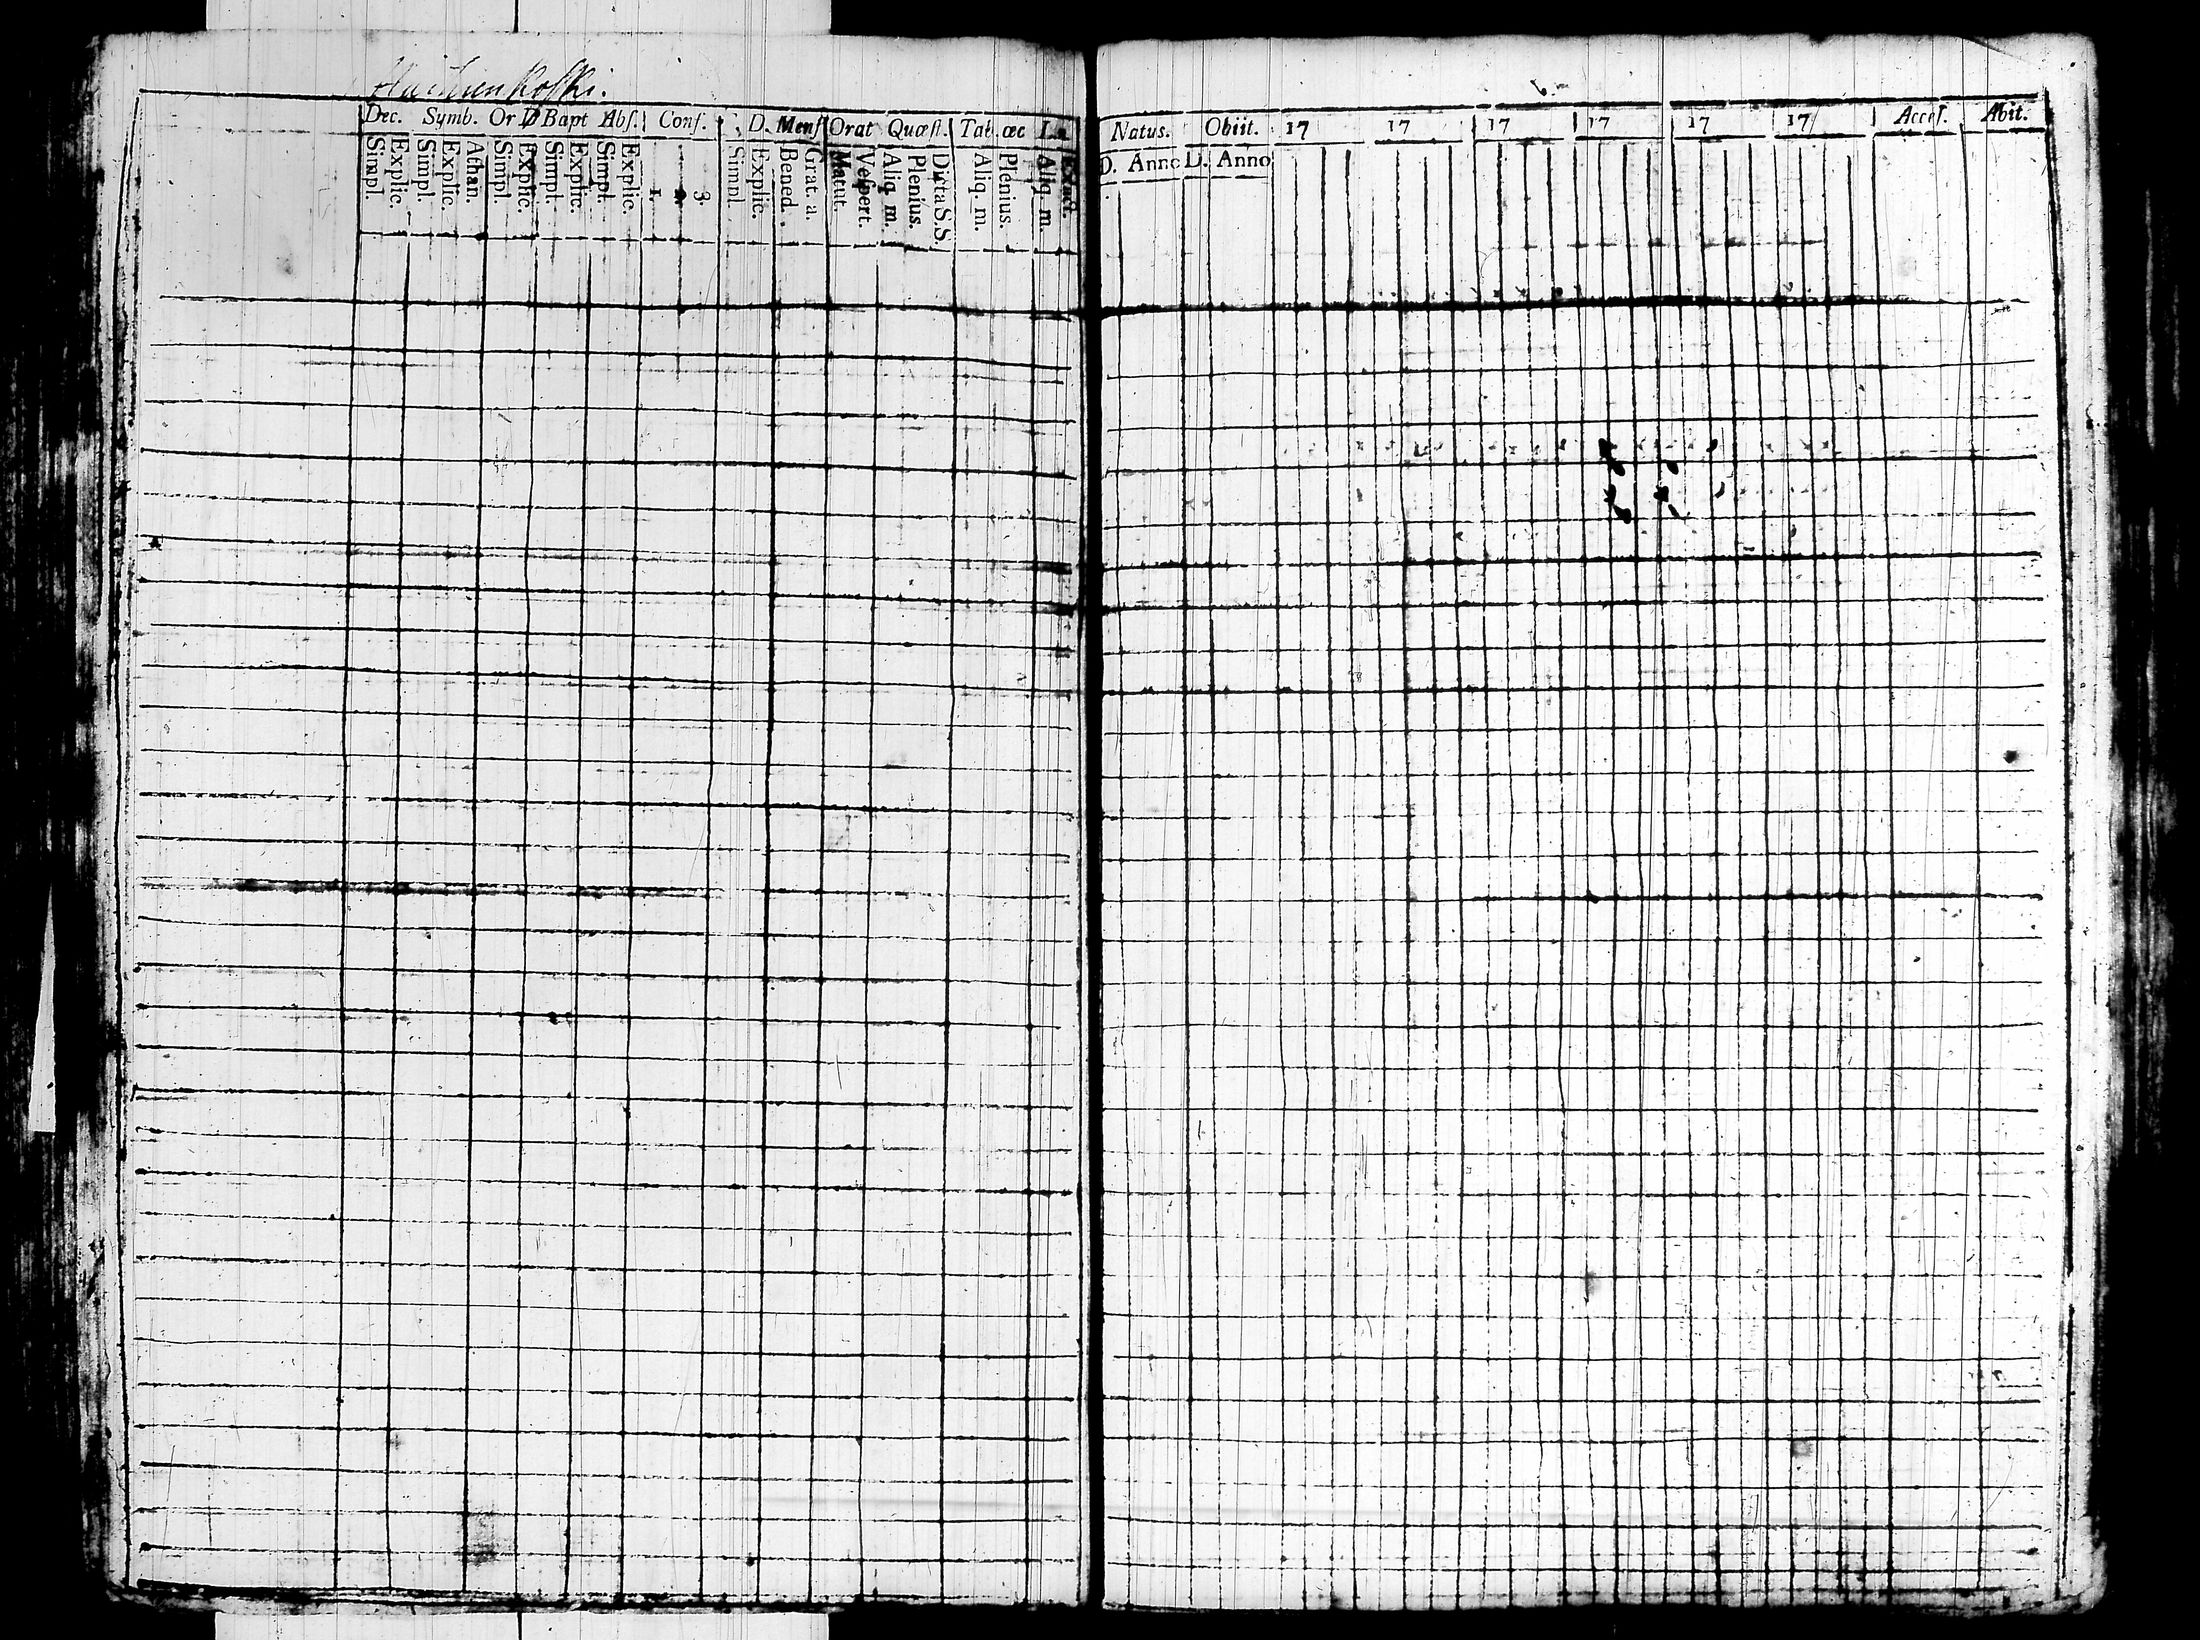 Dec. Symb. Or D Bapt Abſ. Conf. D. Menſ Orat Quæſt. Tab. œc
Simpl. Explic. Simpl. Explic. Athan. Simpl. Explic. Simpl. Explic. Simpl. Explic. 1. 3. Simpl. Explic. Bened. Grat. a. Matut. Veſpert. Aliq. m. Plenius. Dicta S.S. Aliq. m. Plenius. Aliq. m. Exact.
Natus. Obiit. 17 17 17 17 17 17 Acceſ. Abit.
D. Anno D. Anno